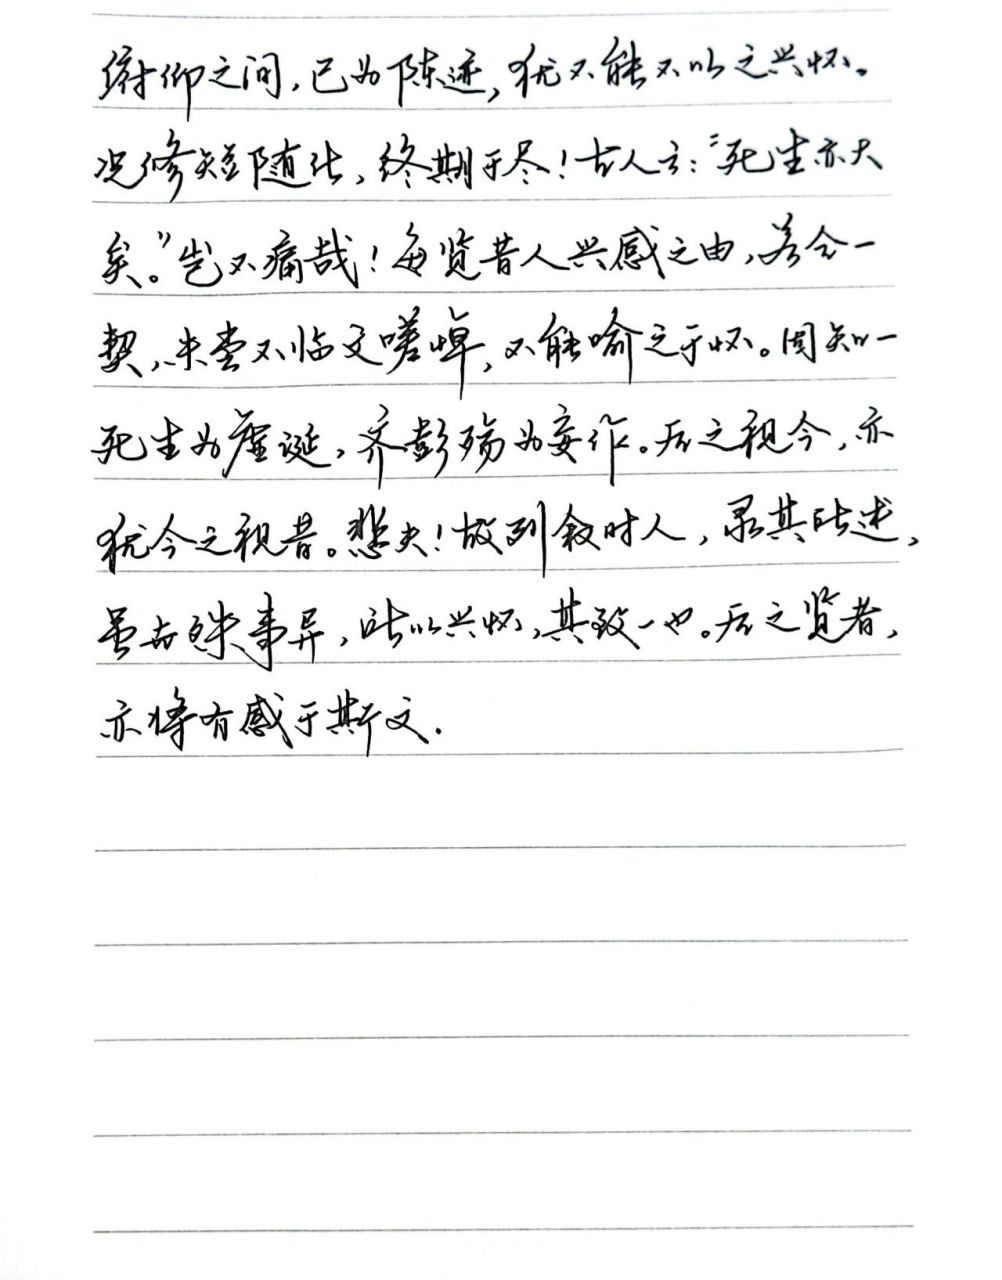 俯仰之间，已为陈迹，犹不能不以之兴怀。
况修短随化，终期于尽！古人云：“死生亦大
矣。”岂不痛哉！每览昔人兴感之由，若合一
契，未尝不临文嗟悼，不能喻之于怀。固知一
死生为虚诞，齐彭殇为妄作。后之视今，亦
犹今之视昔。悲夫！故列叙时人，录其所述，
虽世殊事异，所以兴怀，其致一也。后之览者，
亦将有感于斯文.